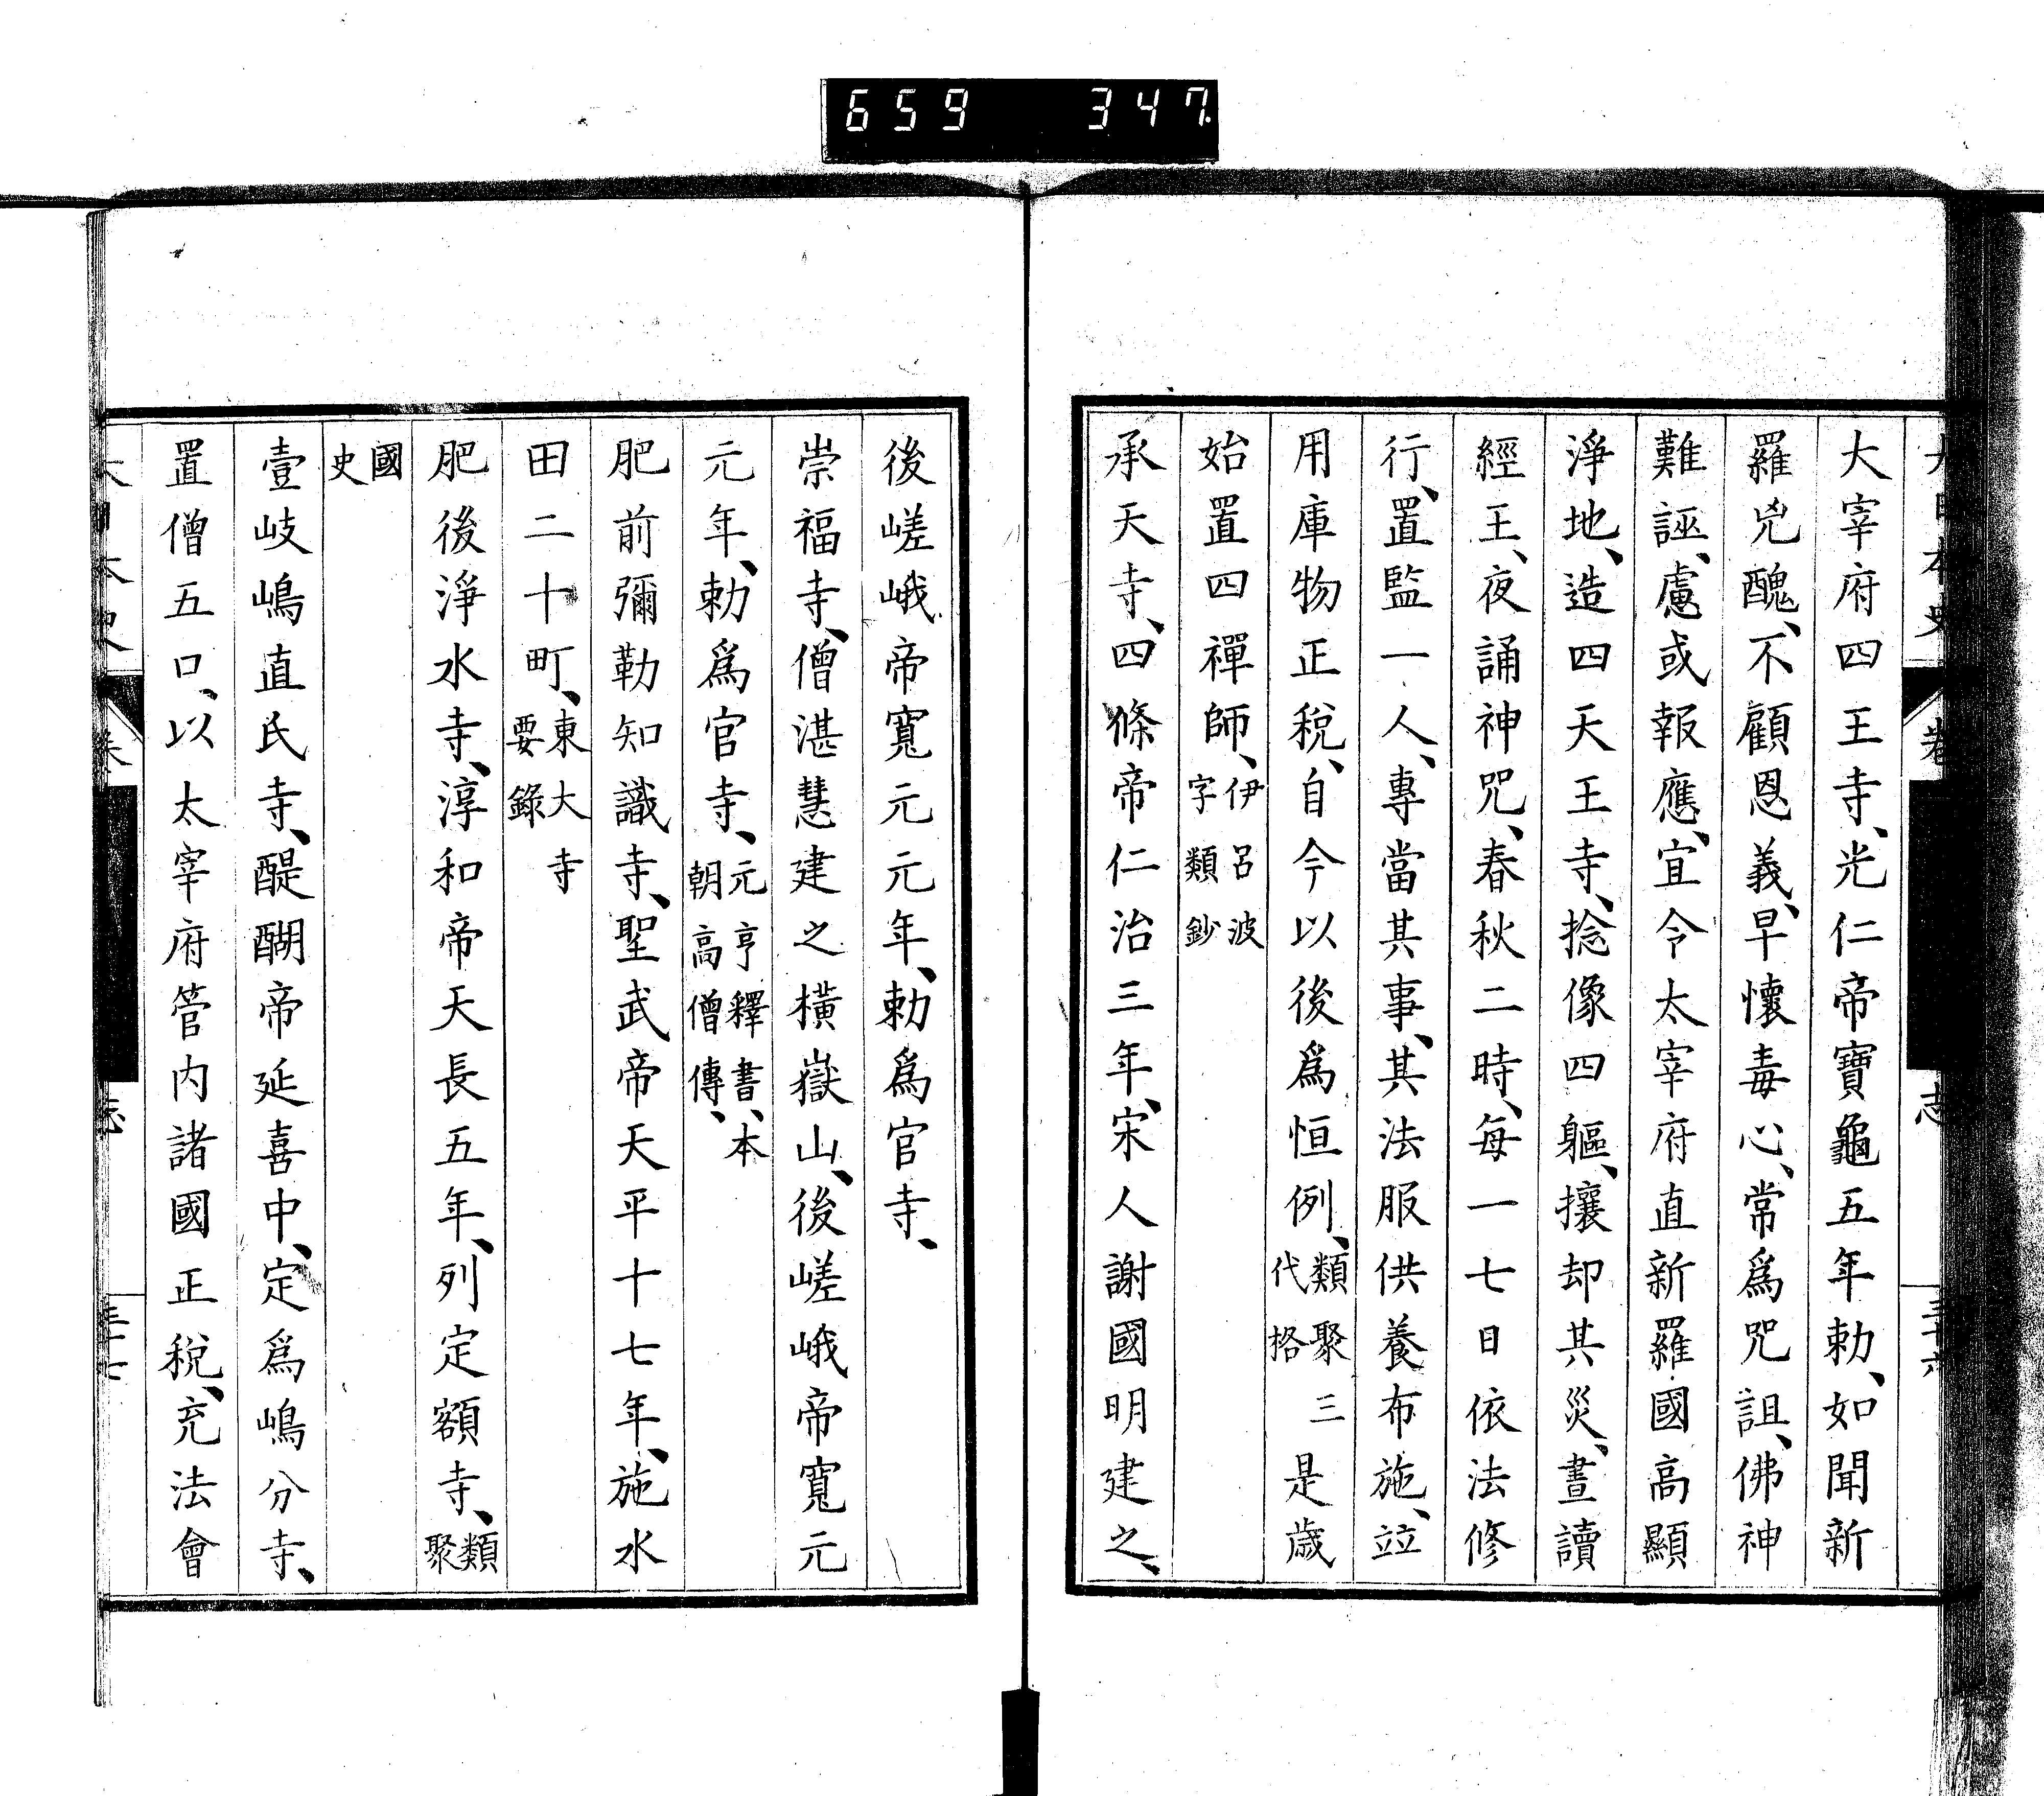 659 347
大日本史 卷 志 三十六
大宰府四王寺、光仁帝寶龜五年勅、如聞新
羅兇醜、不顧恩義、早懷毒心、常爲咒詛、佛神
難誣、慮或報應、宜令太宰府直新羅國高顯
淨地、造四天王寺、捻像四軀、攘却其災、晝讀
經王、夜誦神咒、春秋二時、每一七日依法修
行、置監一人、專當其事、其法服供養布施、竝
用庫物正稅、自今以後爲恒例、類聚三代格 是歲
始置四禪師、伊呂波字類鈔
承天寺、四條帝仁治三年、宋人謝國明建之、
後嵯峨帝寬元元年、勅爲官寺、
崇福寺、僧湛慧建之橫嶽山、後嵯峨帝寬元
元年、勅爲官寺、元亨釋書、本朝高僧傳、
肥前彌勒知識寺、聖武帝天平十七年、施水
田二十町、東大寺要錄
肥後淨水寺、淳和帝天長五年、列定額寺、類聚
國史
壹岐嶋直氏寺、醍醐帝延喜中、定爲嶋分寺、
置僧五口、以太宰府管内諸國正稅、充法會
大日本史 志 三十七